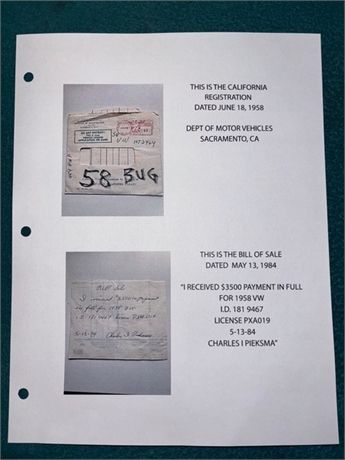 THIS IS THE CALIFORNIA
REGISTRATION
DATED JUNE 18, 1958
DEPT OF MOTOR VEHICLES
SACRAMENTO, CA
58 BUG
THIS IS THE BILL OF SALE
DATED MAY 13, 1984
"I RECEIVED $3500 PAYMENT IN FULL
FOR 1958 VW
I.D. 181 9467
LICENSE PXA019
5-13-84
CHARLES I PIEKSMA"
Bill
I received $3500 payment
in full for 1958 VW
5-13-84 Charles I